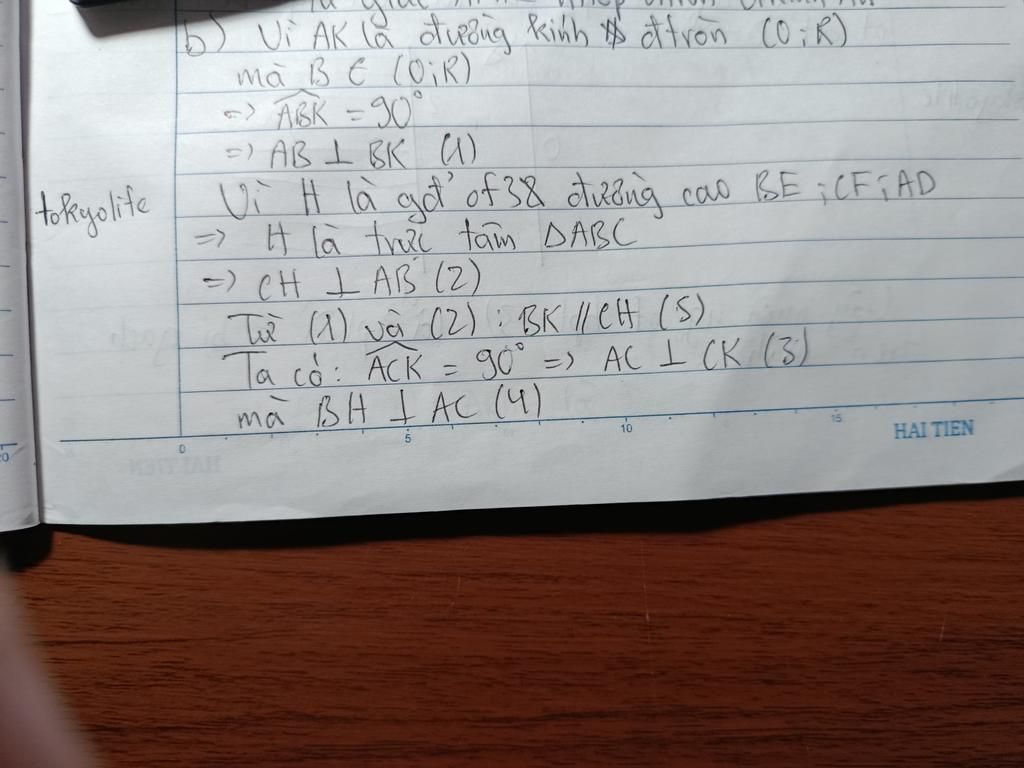 b) Vì AK là đường kính đtròn (O;R)
mà B ∈ (O;R)
=> ABK = 90°
=> AB ⊥ BK (1)
tokyolife
Vì H là gđ' of 3 đường cao BE;CF;AD
=> H là trực tâm ΔABC
=> CH ⊥ AB (2)
Từ (1) và (2): BK // CH (5)
Ta có: ACK = 90° => AC ⊥ CK (3)
mà BH ⊥ AC (4)
0 5 10 15
HAI TIEN